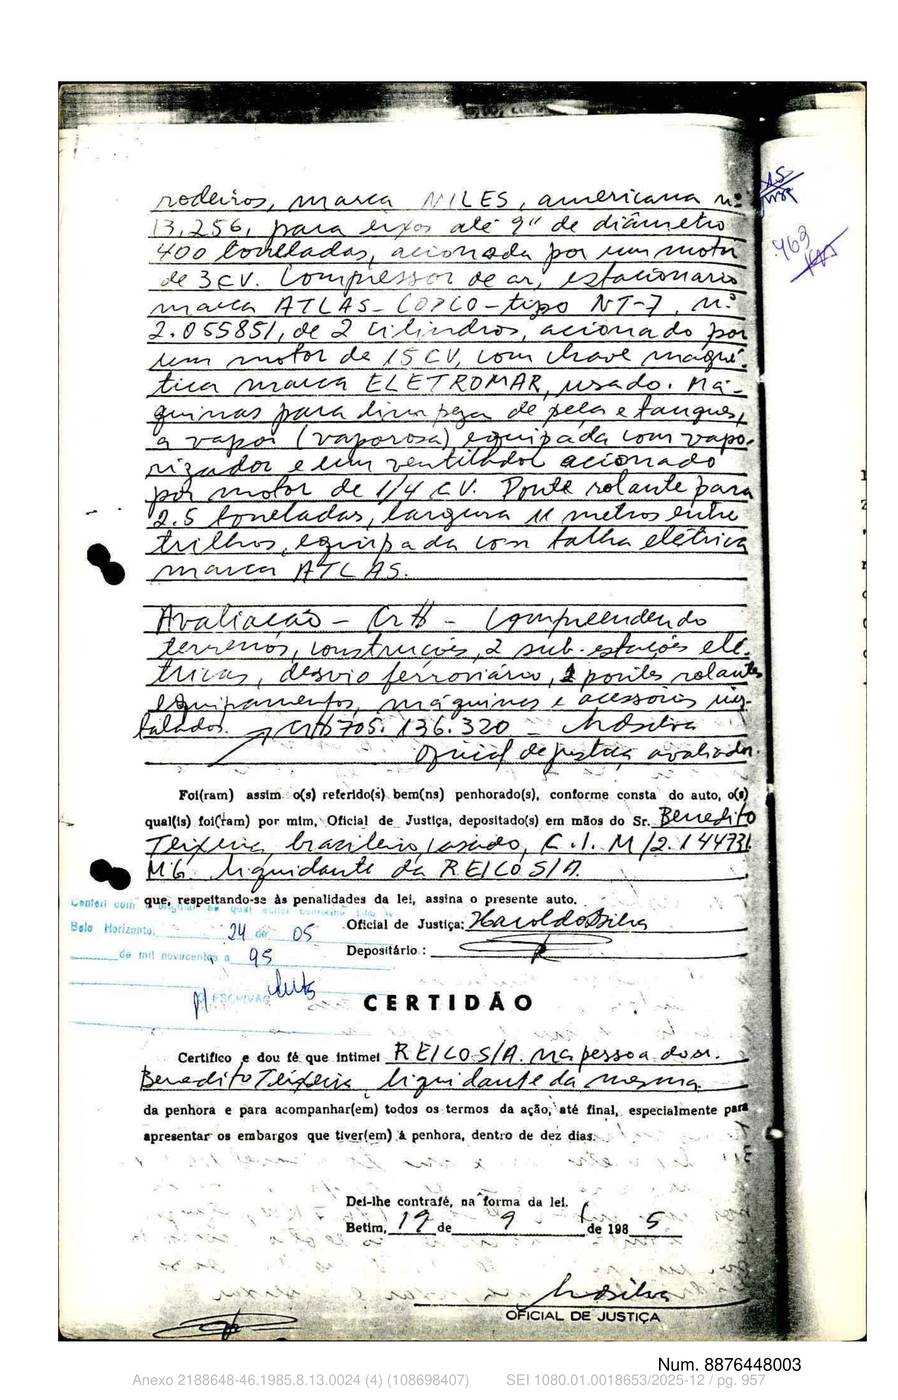 rodeiros, marca NILES, americana nº
13.256, para eixos até 9" de diâmetro
400 toneladas, acionada por um motor
de 3CV. Compressor de ar, estacionario
marca ATLAS-COPCO-tipo NT-7, nº
2.055851, de 2 cilindros, acionado por
um motor de 15CV, com chave magné-
tica marca ELETROMAR, usado. Má-
quinas para limpeza de peças e tanques,
a vapor (vaporosa) equipada com vapo-
rizador e um ventilador acionado
por motor de 1/4 CV. Ponte rolante para
2.5 toneladas, largura 11 metros entre
trilhos, equipada com talha elétrica
marca ATLAS.
Avaliação - Cr$ - Compreendendo
terrenos, construções, 2 sub-estações elé-
tricas, desvio ferroviário, pontes rolantes
equipamentos, máquinas e acessórios ins-
talados. Cr$ 705.136.320 - HdSilva
Oficial de justiça avaliador.
15
463
Foi(ram) assim o(s) referido(s) bem(ns) penhorado(s), conforme consta do auto, o(s)
qual(is) foi(ram) por mim, Oficial de Justiça, depositado(s) em mãos do Sr. Benedito
Teixeira, brasileiro, casado, C.I. M/2.144731
MG liquidante da REICO S/A.
que, respeitando-se às penalidades da lei, assina o presente auto.
Conferi com o original
Belo Horizonte, 24 de 05
de mil novecentos e 95
P/ ESCRIVÃO
Oficial de Justiça: Haroldo Silva
Depositário:
CERTIDÃO
Certifico e dou fé que intimei REICO S/A. na pessoa do sr.
Benedito Teixeira liquidante da mesma
da penhora e para acompanhar(em) todos os termos da ação, até final, especialmente para
apresentar os embargos que tiver(em) à penhora, dentro de dez dias.
Dei-lhe contrafé, na forma da lei.
Betim, 19 de 9 de 1985
HdSilva
OFICIAL DE JUSTIÇA
Num. 8876448003
Anexo 2188648-46.1985.8.13.0024 (4) (108698407) SEI 1080.01.0018653/2025-12 / pg. 957